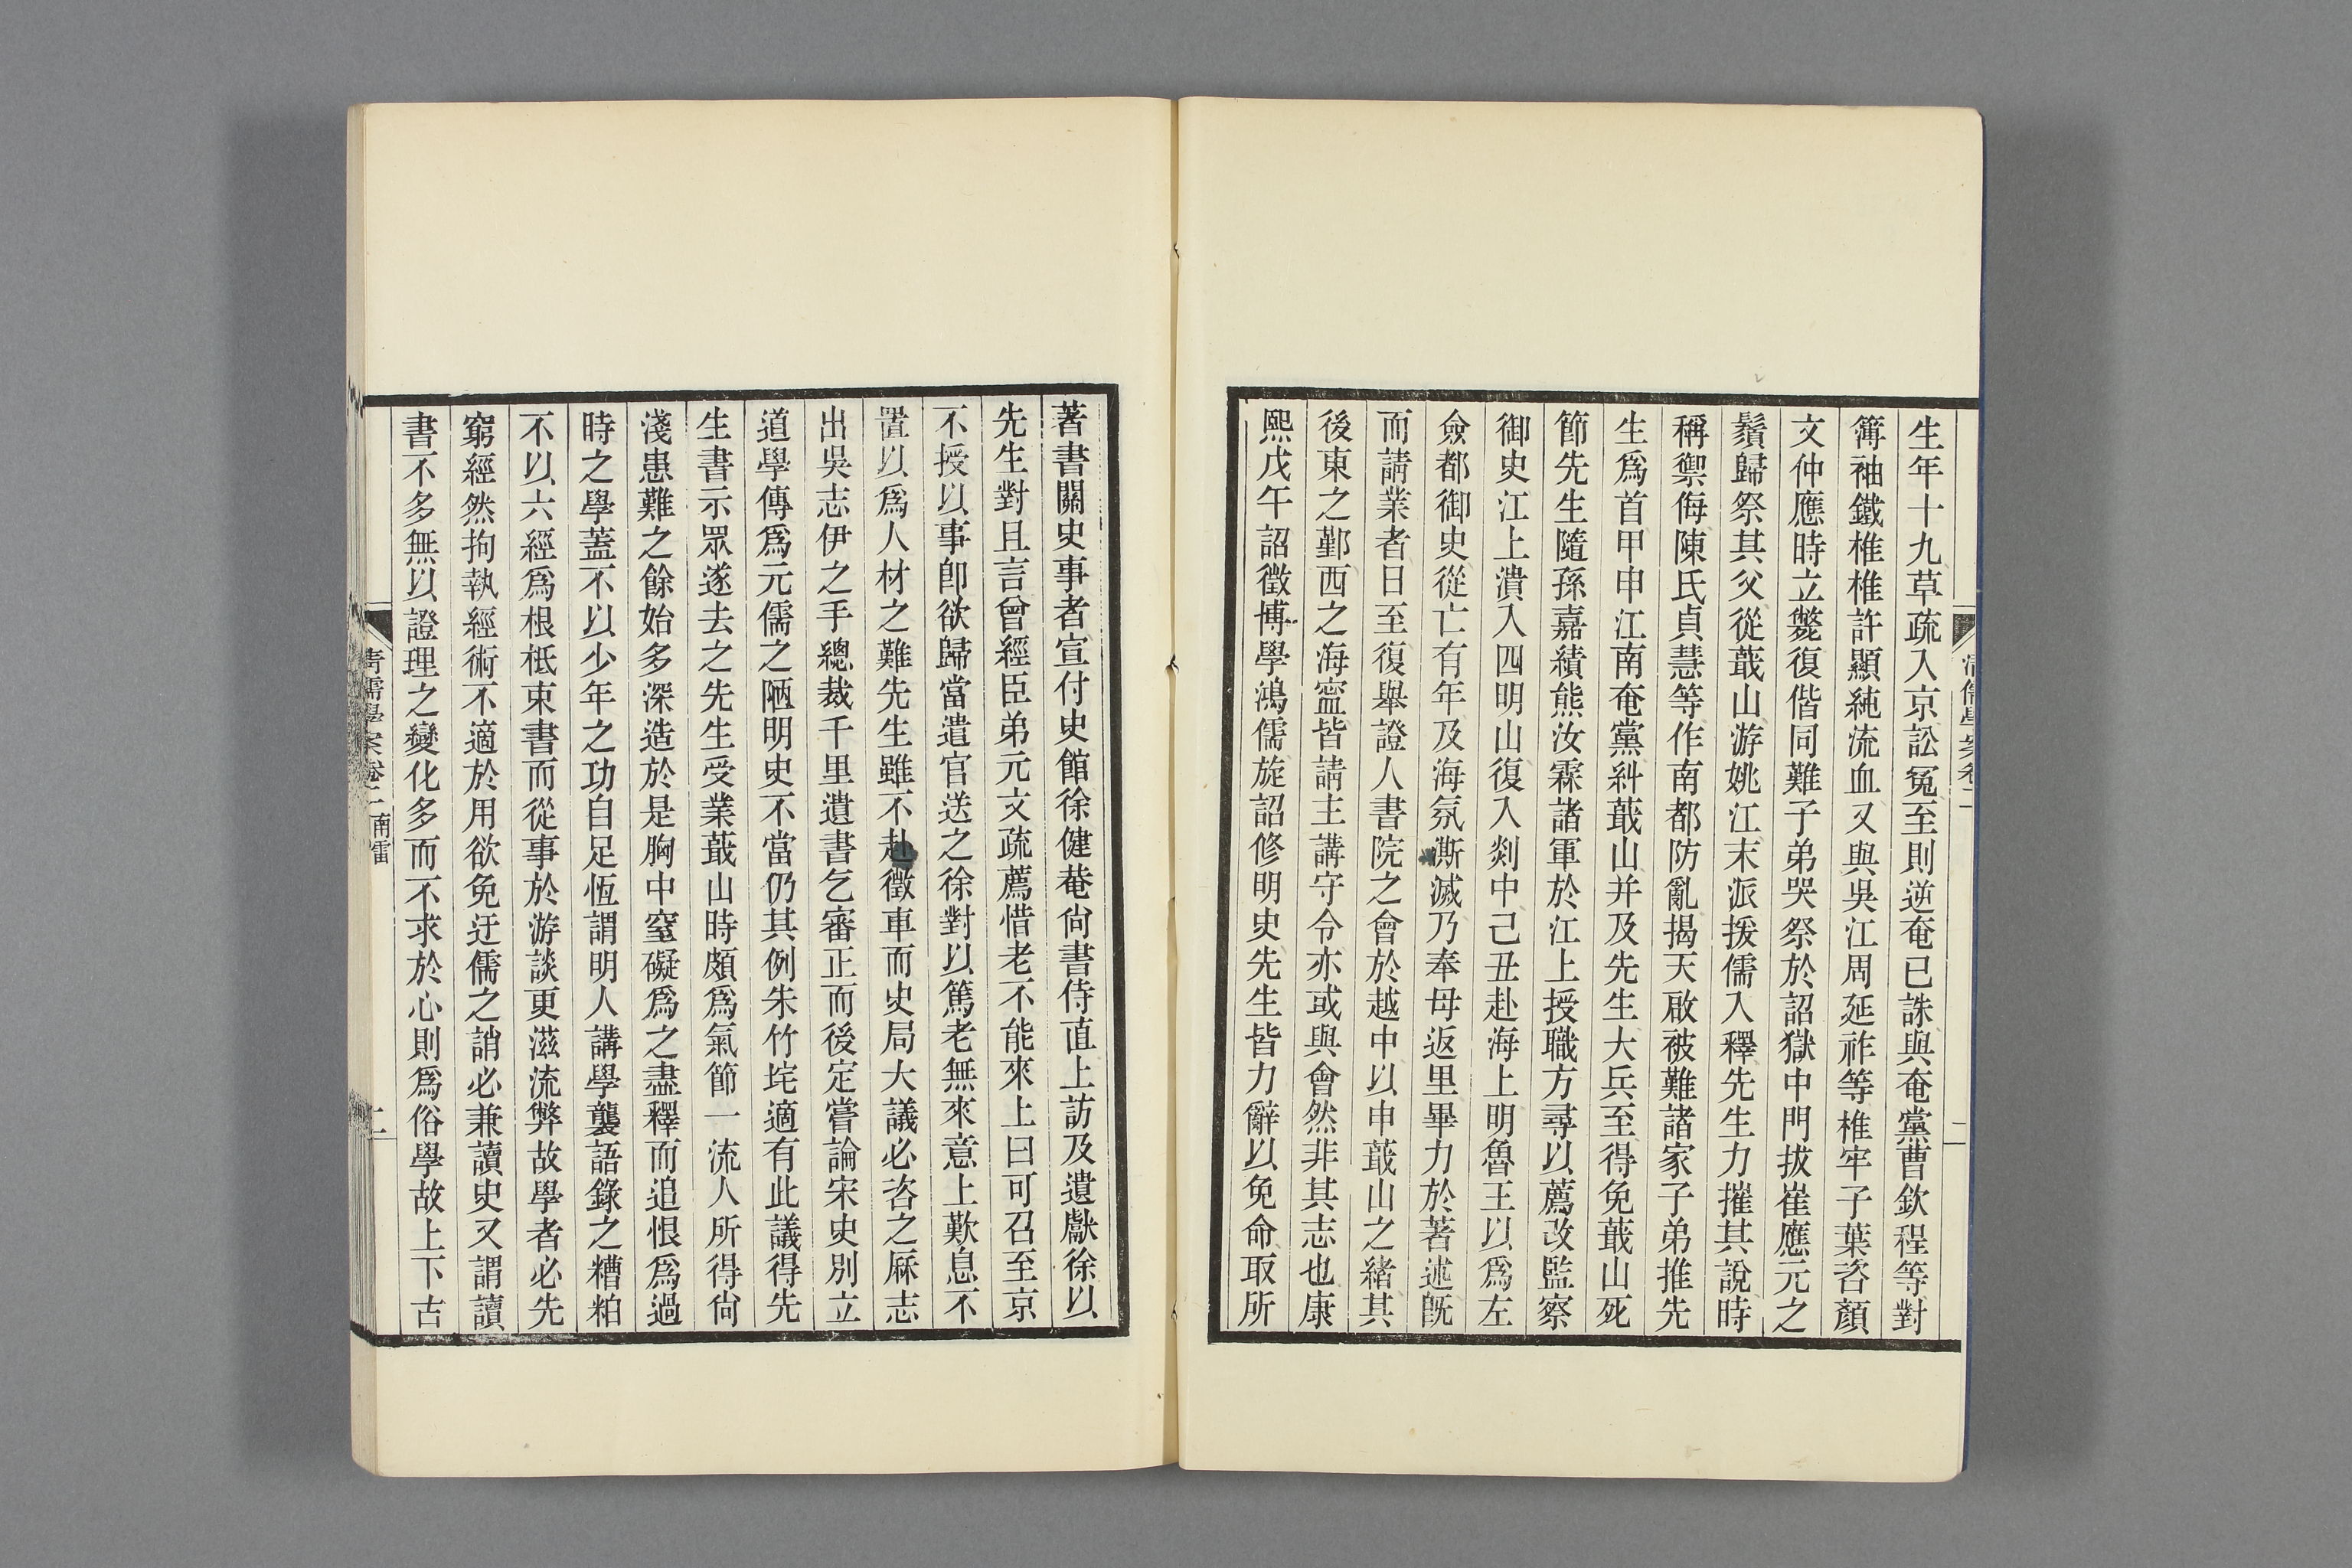 生年十九草疏入京訟冤至則逆奄已誅與奄黨曹欽程等對
簿袖鐵椎椎許顯純流血又與吳江周延祚等椎牢子葉咨顏
文仲應時立斃復偕同難子弟哭祭於詔獄中門拔崔應元之
鬚歸祭其父從蕺山游姚江末派援儒入釋先生力摧其說時
稱禦侮陳氏貞慧等作南都防亂揭天啟被難諸家子弟推先
生爲首甲申江南奄黨糾蕺山并及先生大兵至得免蕺山死
節先生隨孫嘉績熊汝霖諸軍於江上授職方尋以薦改監察
御史江上潰入四明山復入剡中己丑赴海上明魯王以爲左
僉都御史從亡有年及海氛澌滅乃奉母返里畢力於著述旣
而請業者日至復舉證人書院之會於越中以申蕺山之緒其
後東之鄞西之海寧皆請主講守令亦或與會然非其志也康
熙戊午詔徵博學鴻儒旋詔修明史先生皆力辭以免命取所
清儒學案卷二
二
著書關史事者宣付史館徐健菴尙書侍直上訪及遺獻徐以
先生對且言曾經臣弟元文疏薦惜老不能來上曰可召至京
不授以事卽欲歸當遣官送之徐對以篤老無來意上歎息不
置以爲人材之難先生雖不赴徵車而史局大議必咨之厤志
出吳志伊之手總裁千里遺書乞審正而後定嘗論宋史別立
道學傳爲元儒之陋明史不當仍其例朱竹垞適有此議得先
生書示眾遂去之先生受業蕺山時頗爲氣節一流人所得尙
淺患難之餘始多深造於是胸中窒礙爲之盡釋而追恨爲過
時之學蓋不以少年之功自足恆謂明人講學襲語錄之糟粕
不以六經爲根柢束書而從事於游談更滋流弊故學者必先
窮經然拘執經術不適於用欲免迂儒之誚必兼讀史又謂讀
書不多無以證理之變化多而不求於心則爲俗學故上下古
清儒學案卷二 南雷
二